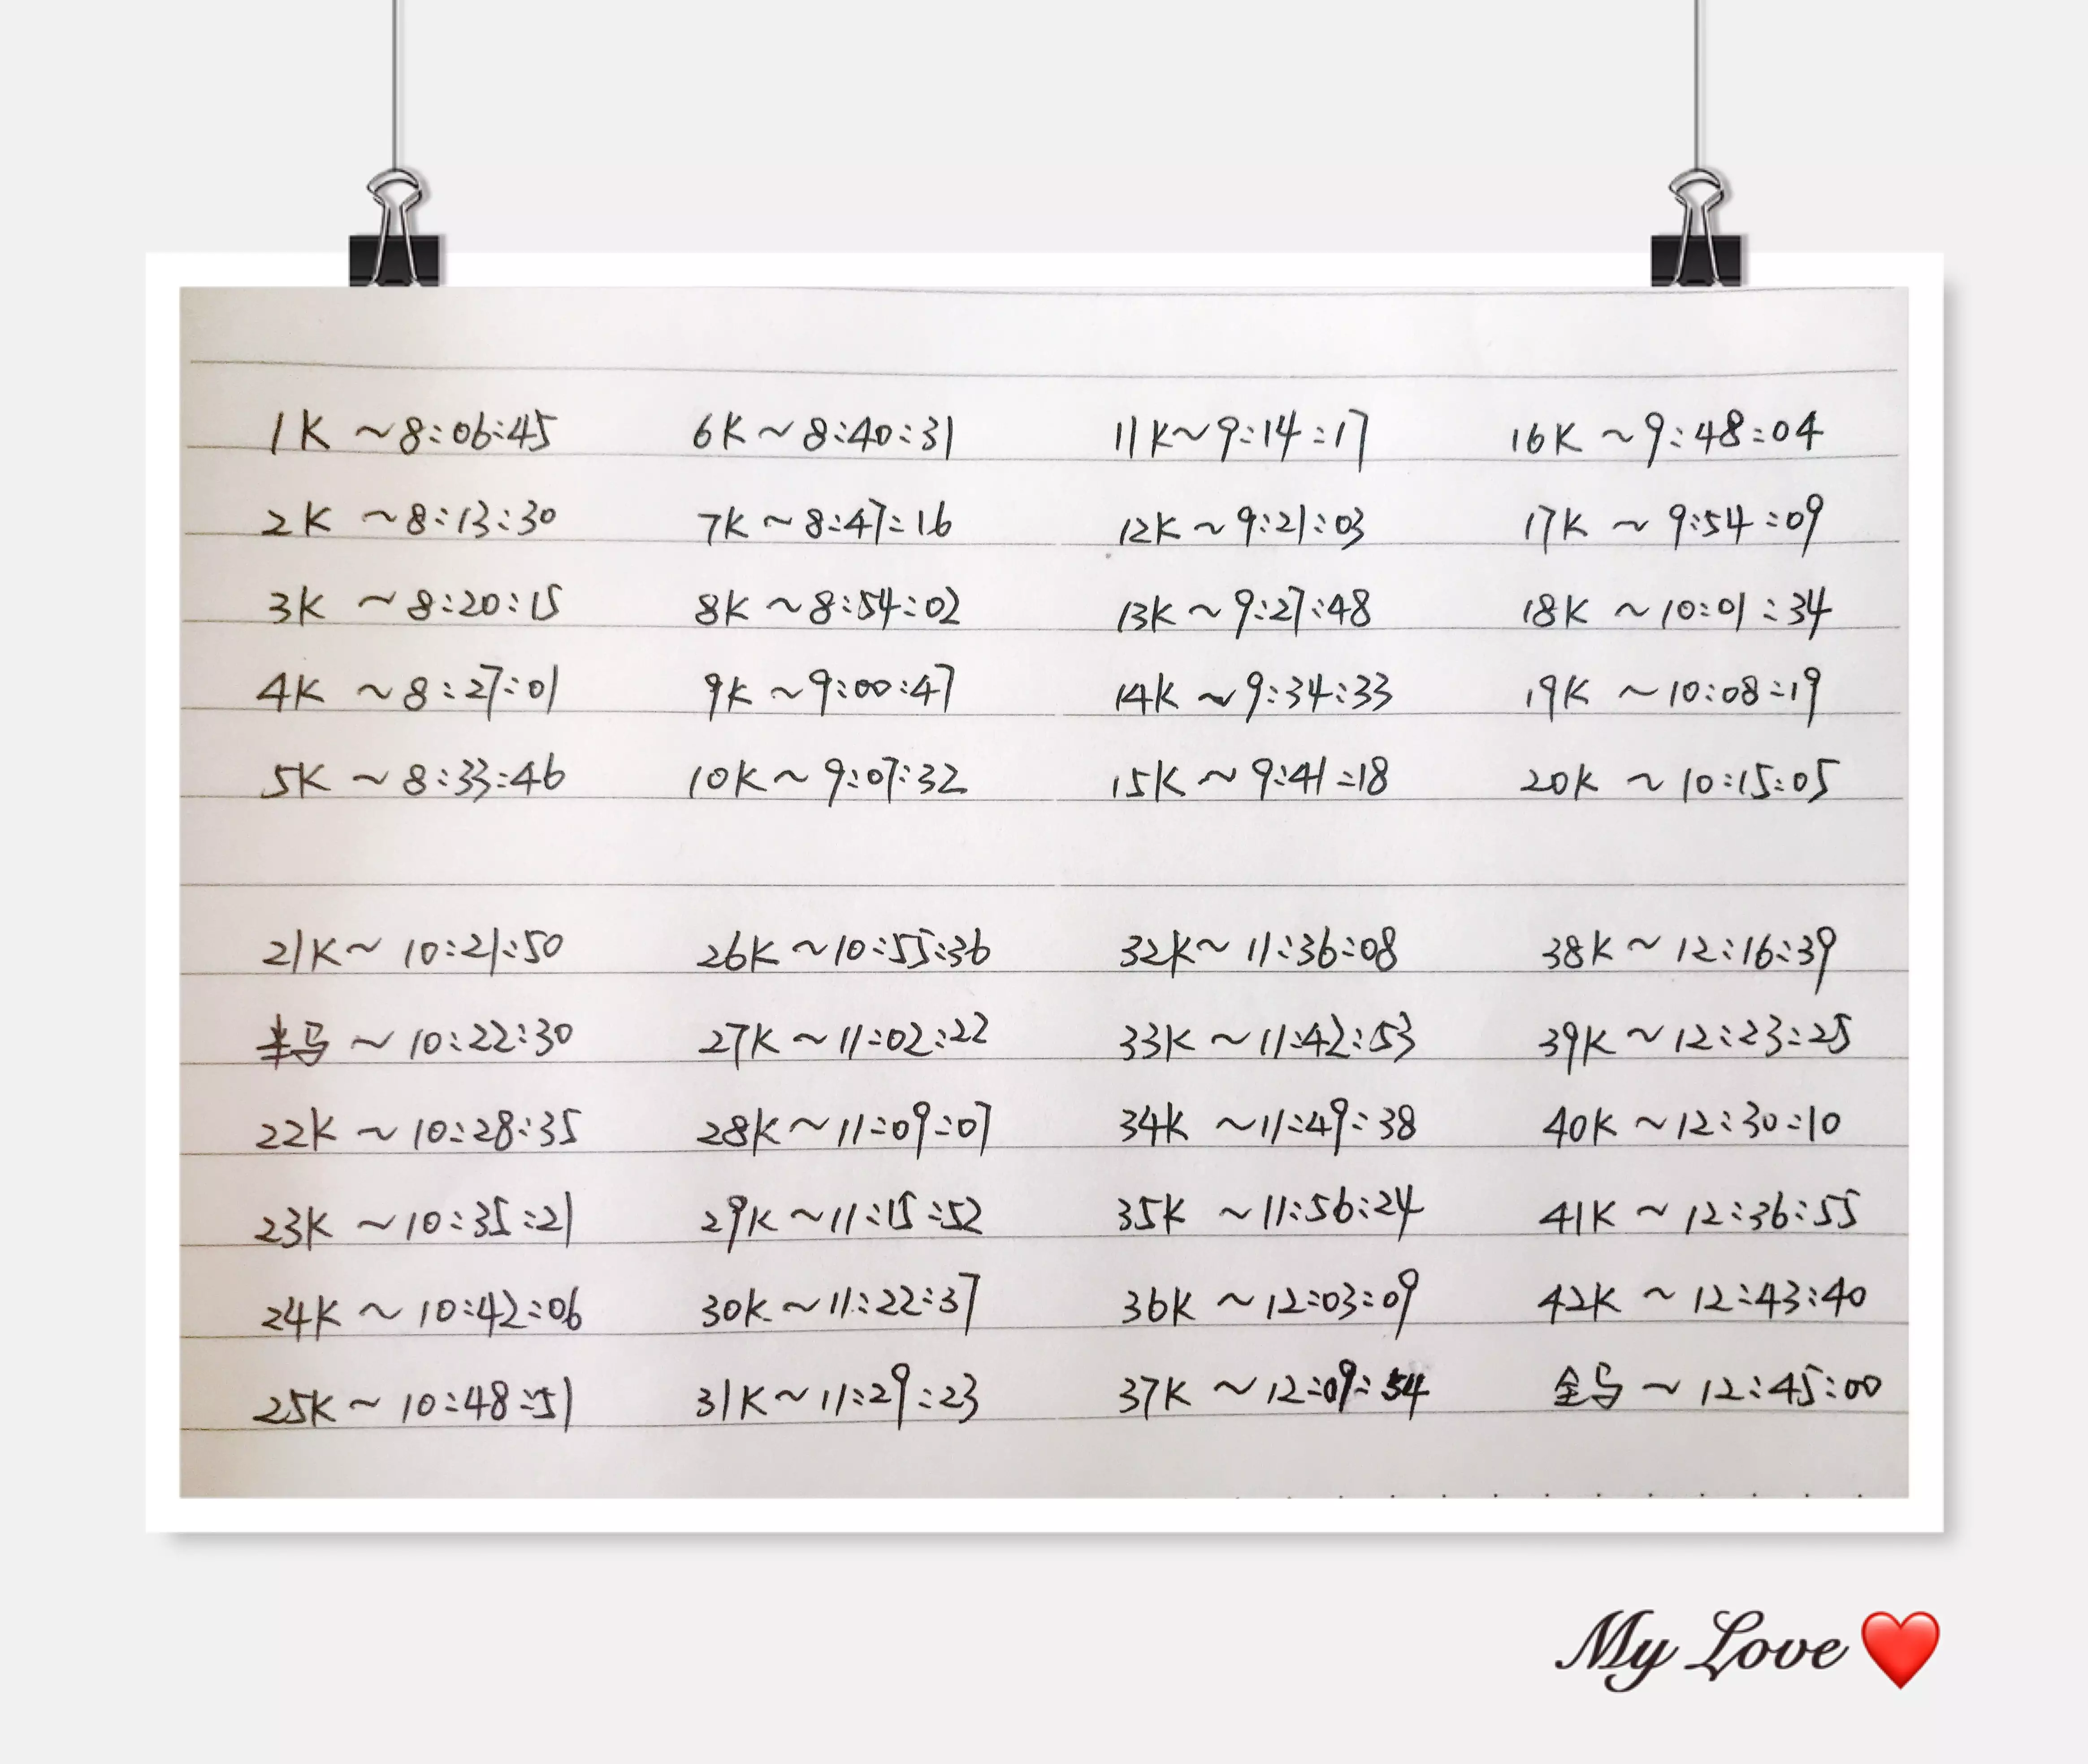 1K ~8:06:45 6K~8:40:31 11K~9:14:17 16K ~9:48:04
2K ~8:13:30 7K~8:47:16 12K~9:21:03 17K ~9:54:09
3K ~8:20:15 8K~8:54:02 13K~9:27:48 18K ~10:01:34
4K ~8:27:01 9K~9:00:47 14K~9:34:33 19K ~10:08:19
5K ~8:33:46 10K~9:07:32 15K~9:41:18 20K ~10:15:05
21K~10:21:50 26K~10:55:36 32K~11:36:08 38K~12:16:39
半马~10:22:30 27K~11:02:22 33K~11:42:53 39K~12:23:25
22K~10:28:35 28K~11:09:07 34K ~11:49:38 40K~12:30:10
23K~10:35:21 29K~11:15:52 35K ~11:56:24 41K~12:36:55
24K~10:42:06 30K~11:22:37 36K~12:03:09 42K~12:43:40
25K~10:48:51 31K~11:29:23 37K~12:09:54 全马~12:45:00
My Love